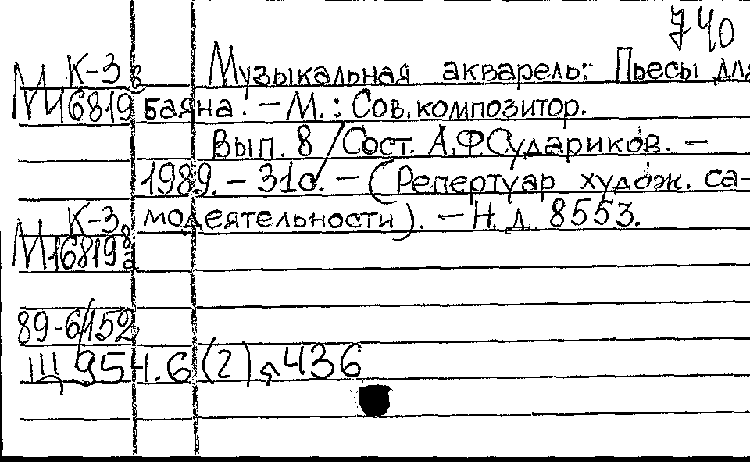 740
К-3
М16819 8
Музыкальная акварель: Пьесы для
баяна. – М.: Сов. композитор.
Вып. 8 / Сост. А.Ф. Судариков. –
1989. – 31с. – (Репертуар худож. са-
модеятельности). – Н. д. 8553.
К-3
М16819 8
89-6/152
Щ 954.6 (2) я 436